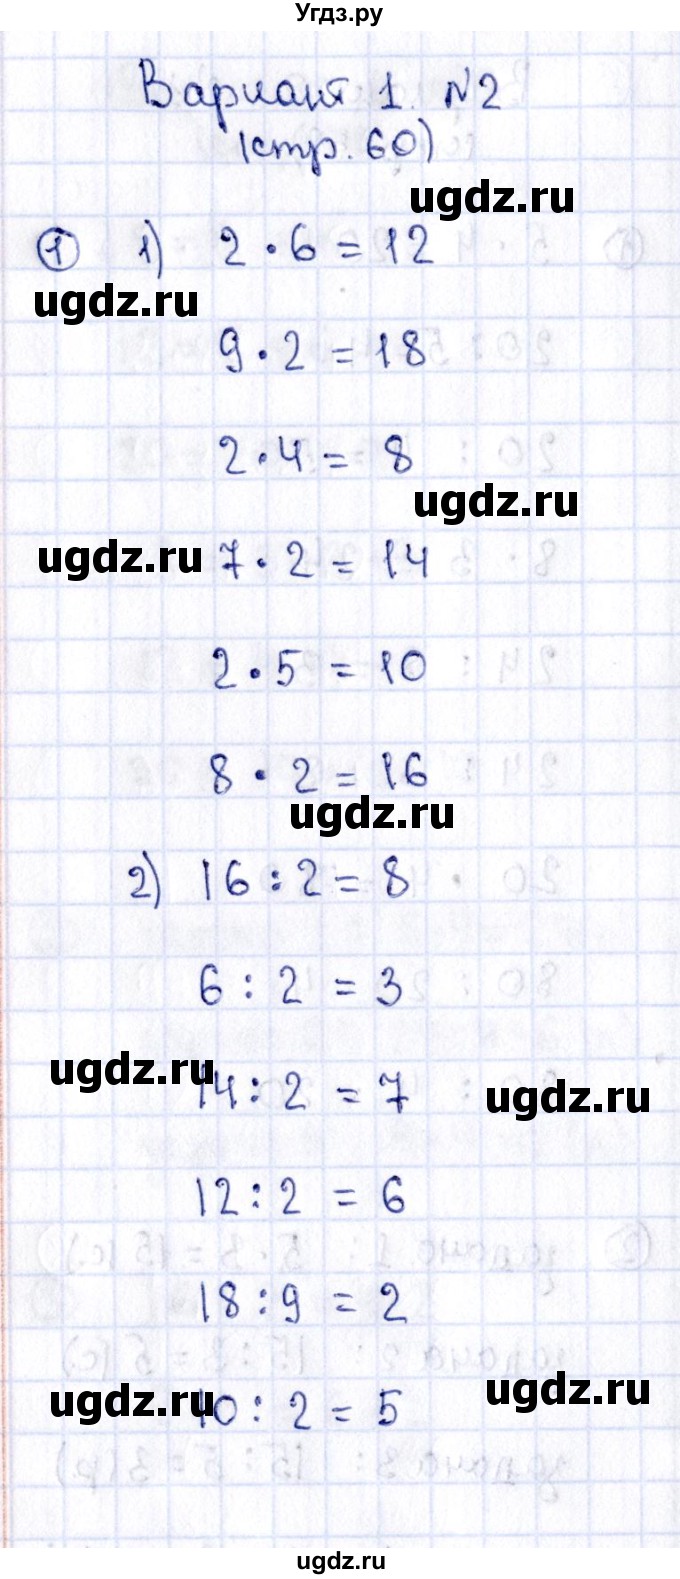 Угдз.ру
Вариант 1. №2
(стр. 60)
ugdz.ru
① 1) 2 · 6 = 12
ugdz.ru
9 · 2 = 18
2 · 4 = 8
ugdz.ru
ugdz.ru 7 · 2 = 14
2 · 5 = 10
8 · 2 = 16
ugdz.ru
2) 16 : 2 = 8
6 : 2 = 3
ugdz.ru
14 : 2 = 7
ugdz.ru
12 : 2 = 6
18 : 9 = 2
ugdz.ru
ugdz.ru
10 : 2 = 5
ugdz.ru